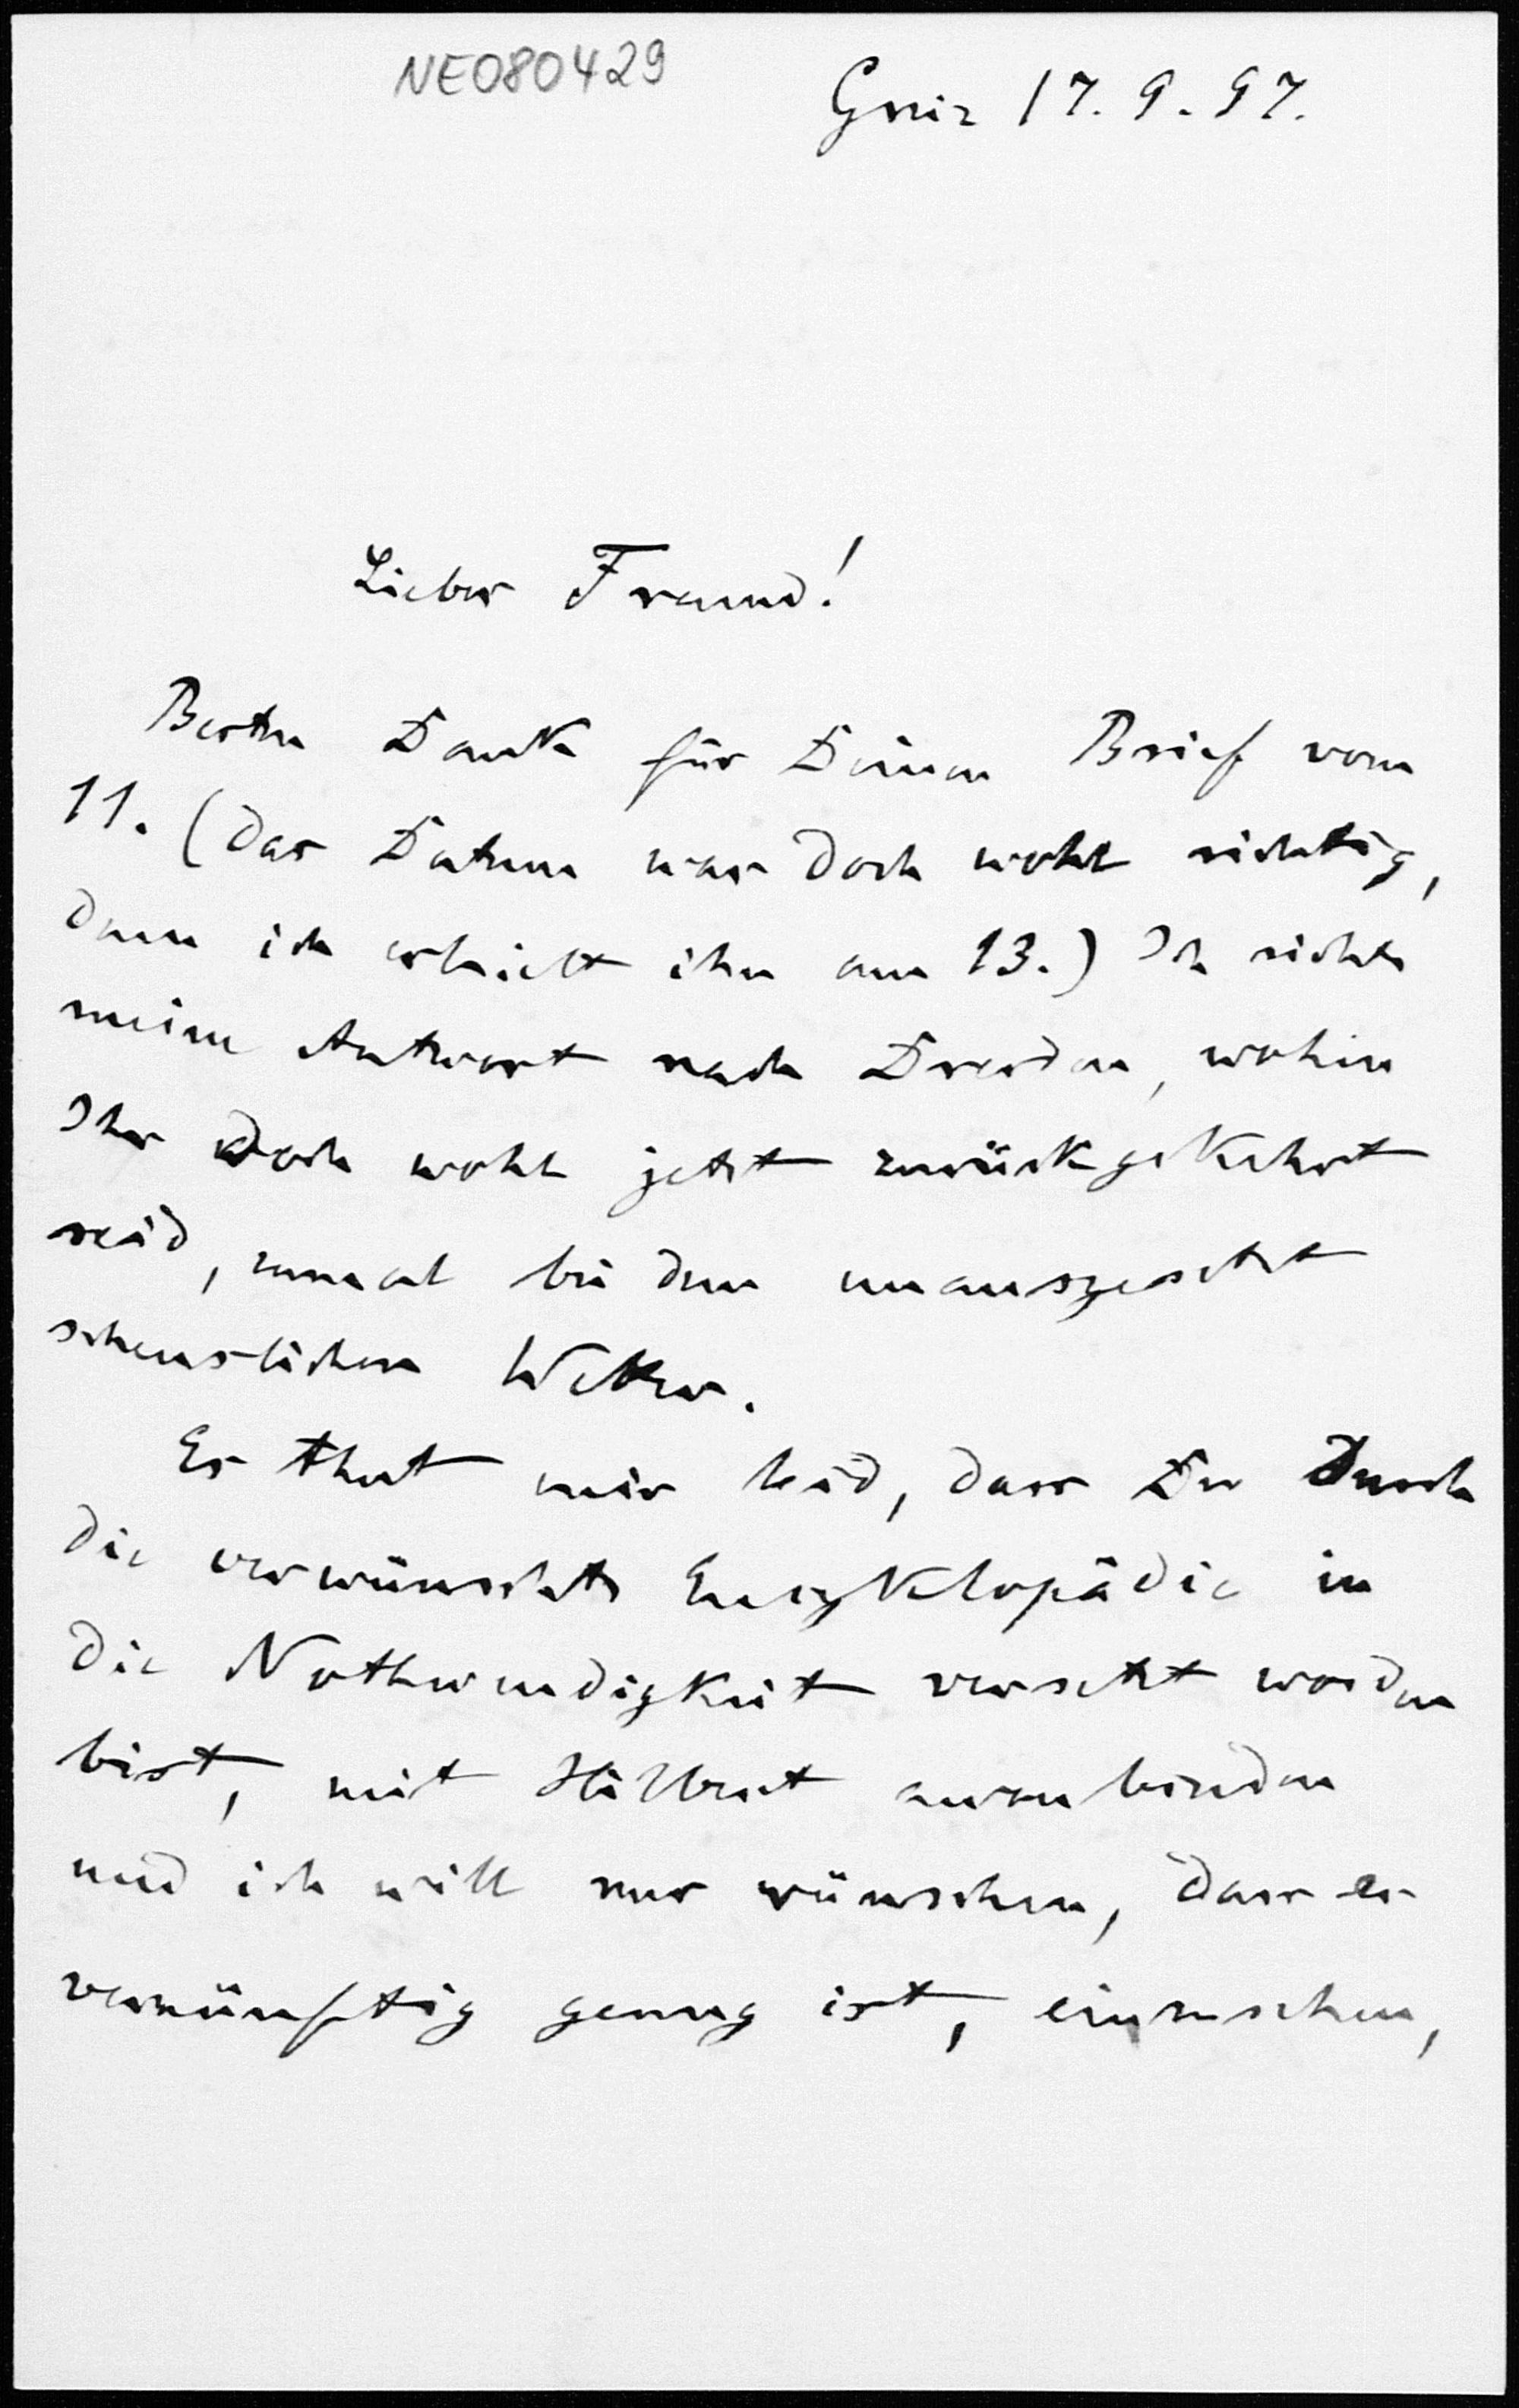 NE080429
Greiz 17. 9. 97.
Lieber Freund!
Besten Dank für Deinen Brief vom
11. (das Datum war doch wohl richtig,
denn ich erhielt ihn am 13.) Ich richte
meine Antwort nach Dresden, wohin
Ihr doch wohl jetzt zurückgekehrt
seid, zumal bei dem unausgesetzt
scheuslichen Wetter.
Es thut mir leid, dass Du durch
die verwünschte Encyklopädie in
die Nothwendigkeit versetzt worden
bist, mit Hilbert anzubinden
und ich will nur wünschen, dass er
vernünftig genug ist, einzusehen,